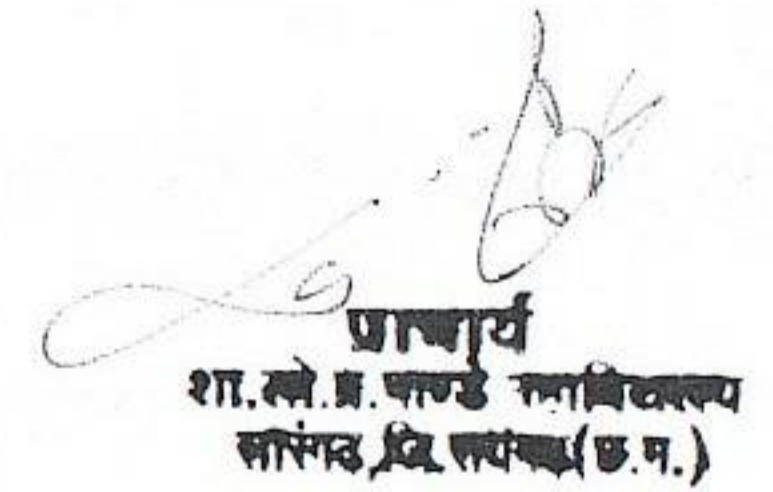 प्राचार्य
शा.लो.प्र.पाण्डे महाविद्यालय
सारंगढ़,जि. रायगढ़(छ.ग.)